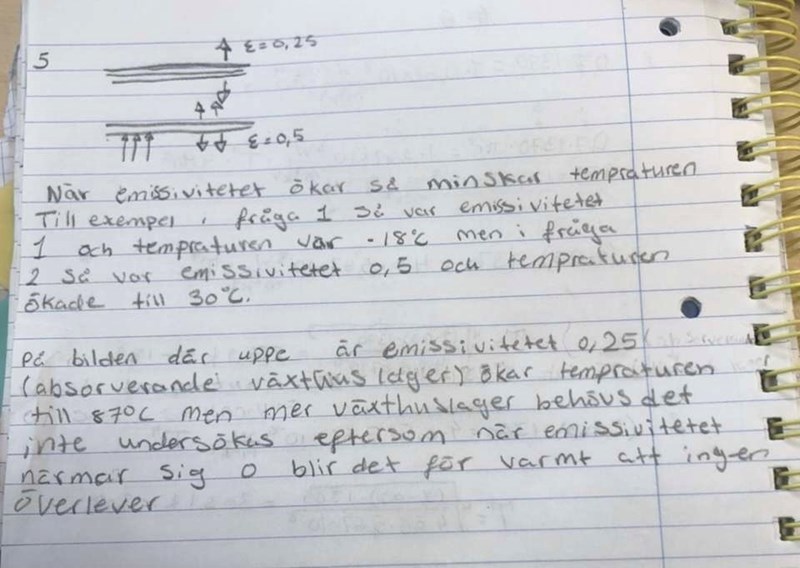 5
ε=0,25
ε=0,5
När emissivitetet ökar så minskar tempraturen
Till exempel i fråga 1 så var emissivitetet
1 och tempraturen var -18°C men i fråga
2 så var emissivitetet 0,5 och tempraturen
ökade till 30°C.
på bilden där uppe är emissivitetet 0,25
(absorverande växthus lager) ökar tempraturen
till 87°C men mer växthuslager behövs det
inte undersökas eftersom när emissivitetet
närmar sig 0 blir det för varmt att ingen
överlever